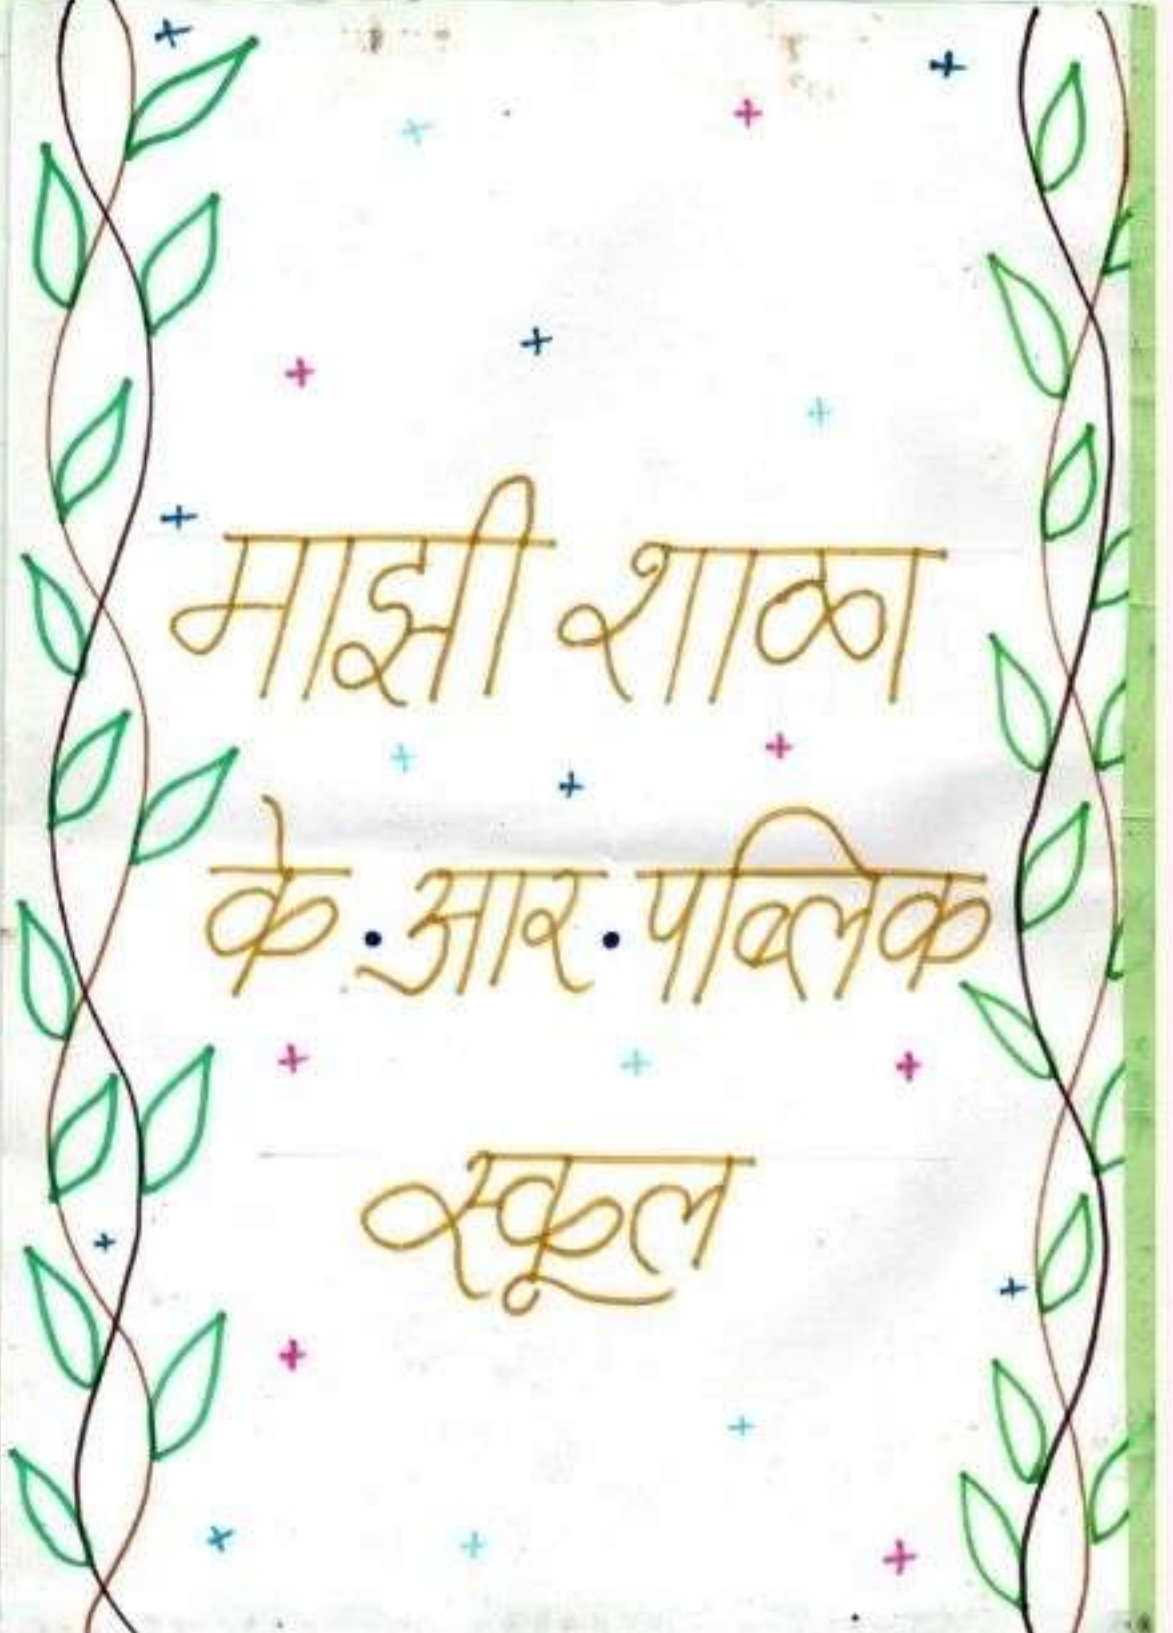 माझी शाळा
के.आर.पब्लिक
स्कूल